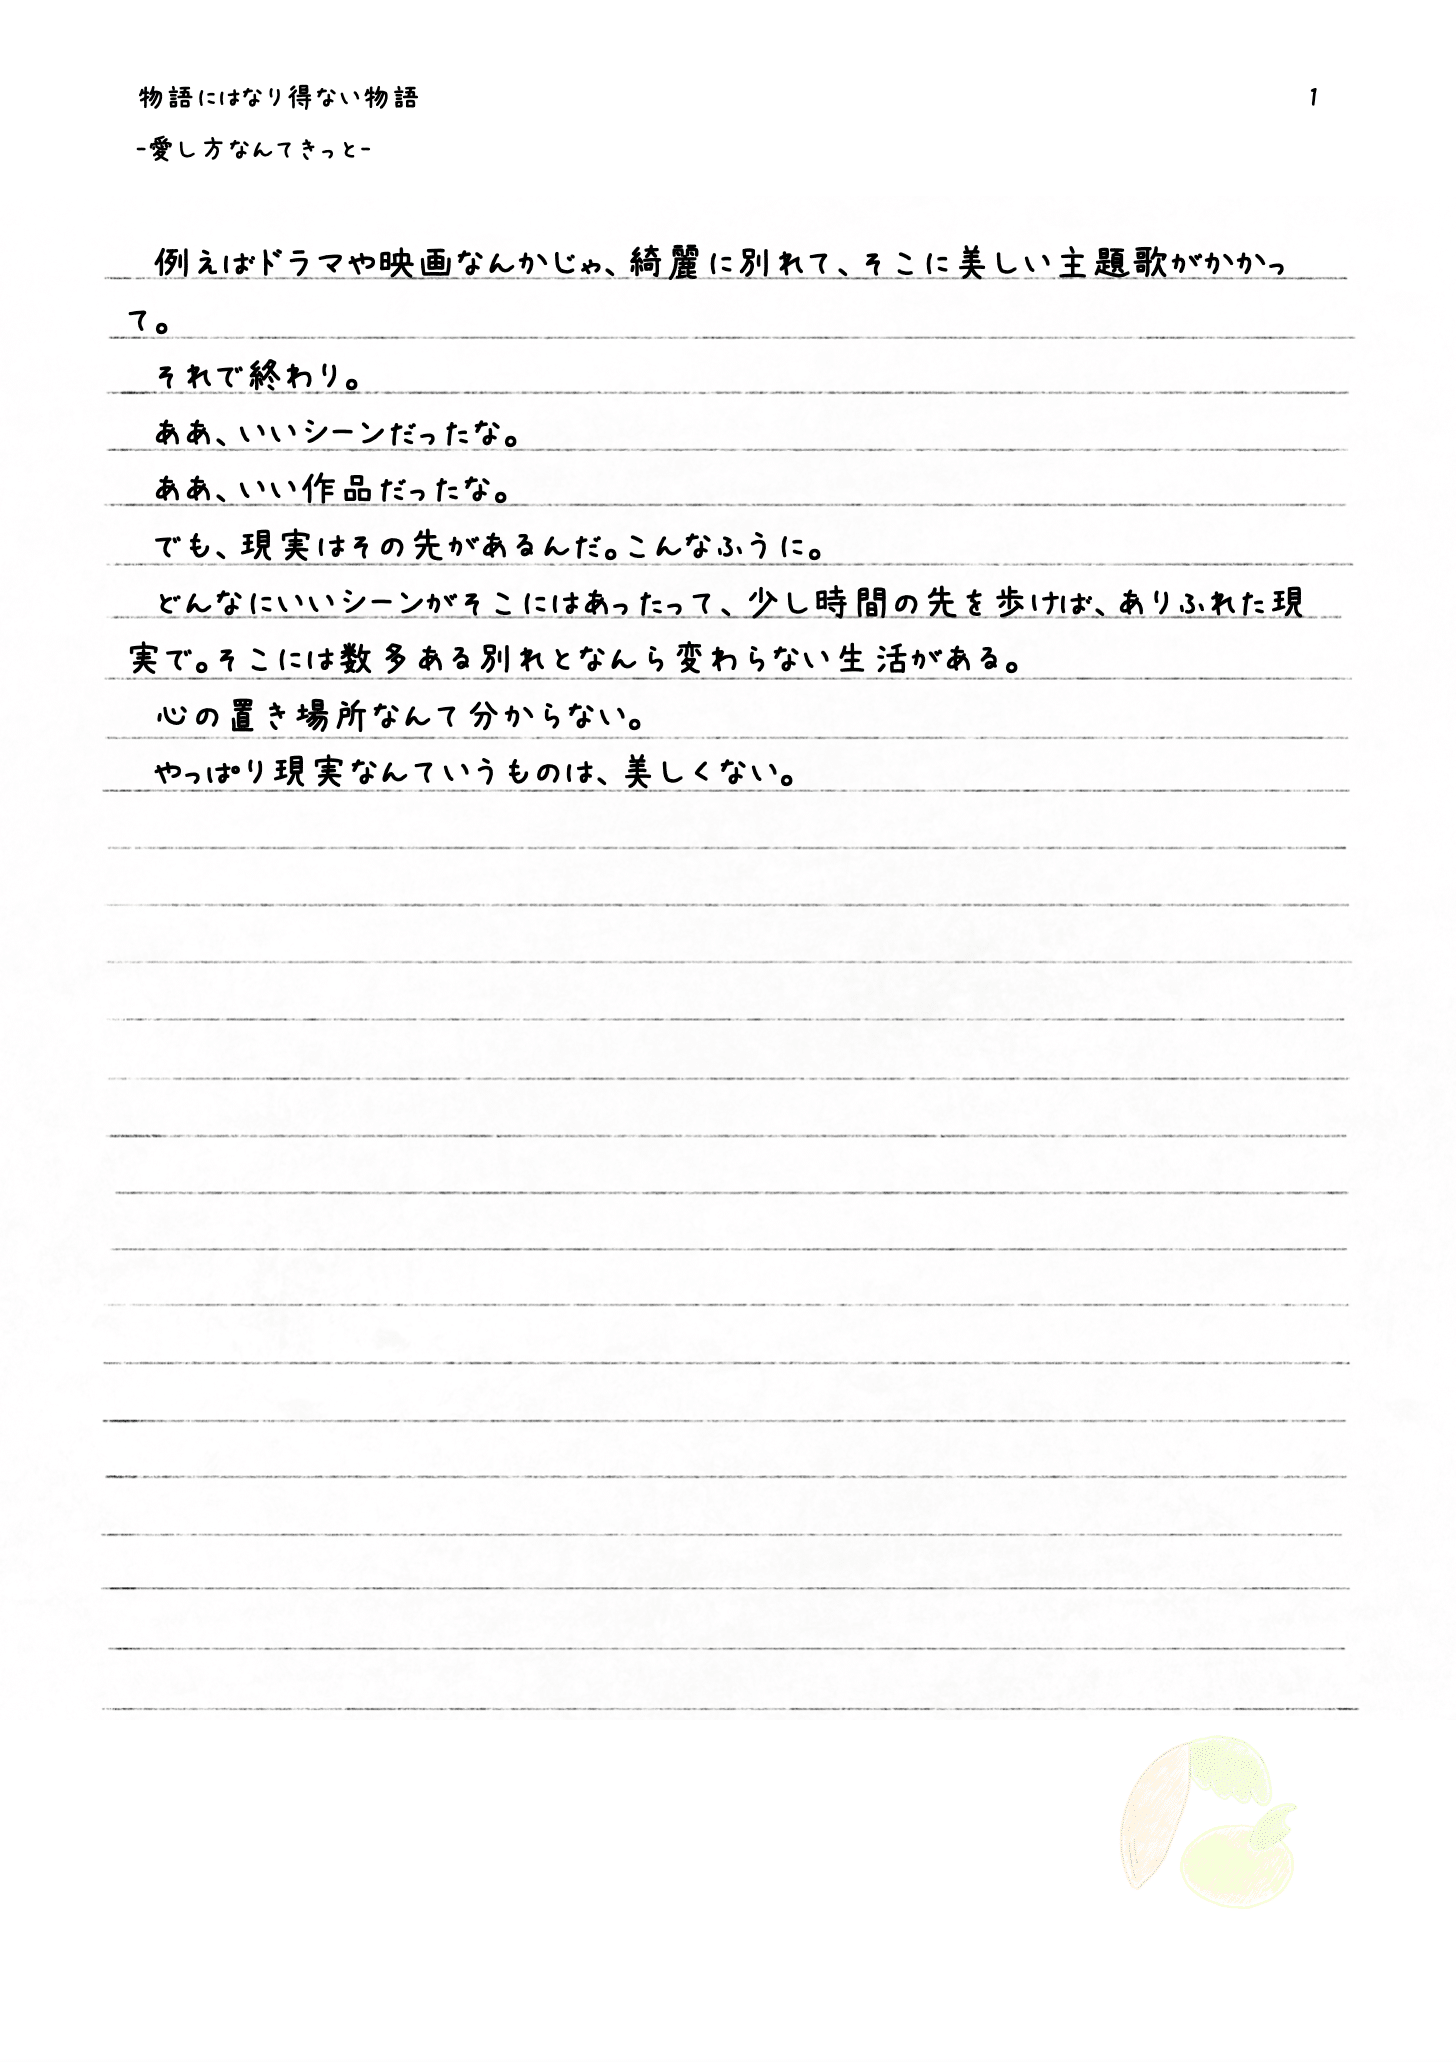 物語にはなり得ない物語
1
-愛し方なんてきっと-
例えばドラマや映画なんかじゃ、綺麗に別れて、そこに美しい主題歌がかかっ
て。
それで終わり。
ああ、いいシーンだったな。
ああ、いい作品だったな。
でも、現実はその先があるんだ。こんなふうに。
どんなにいいシーンがそこにはあったって、少し時間の先を歩けば、ありふれた現
実で。そこには数多ある別れとなんら変わらない生活がある。
心の置き場所なんて分からない。
やっぱり現実なんていうものは、美しくない。